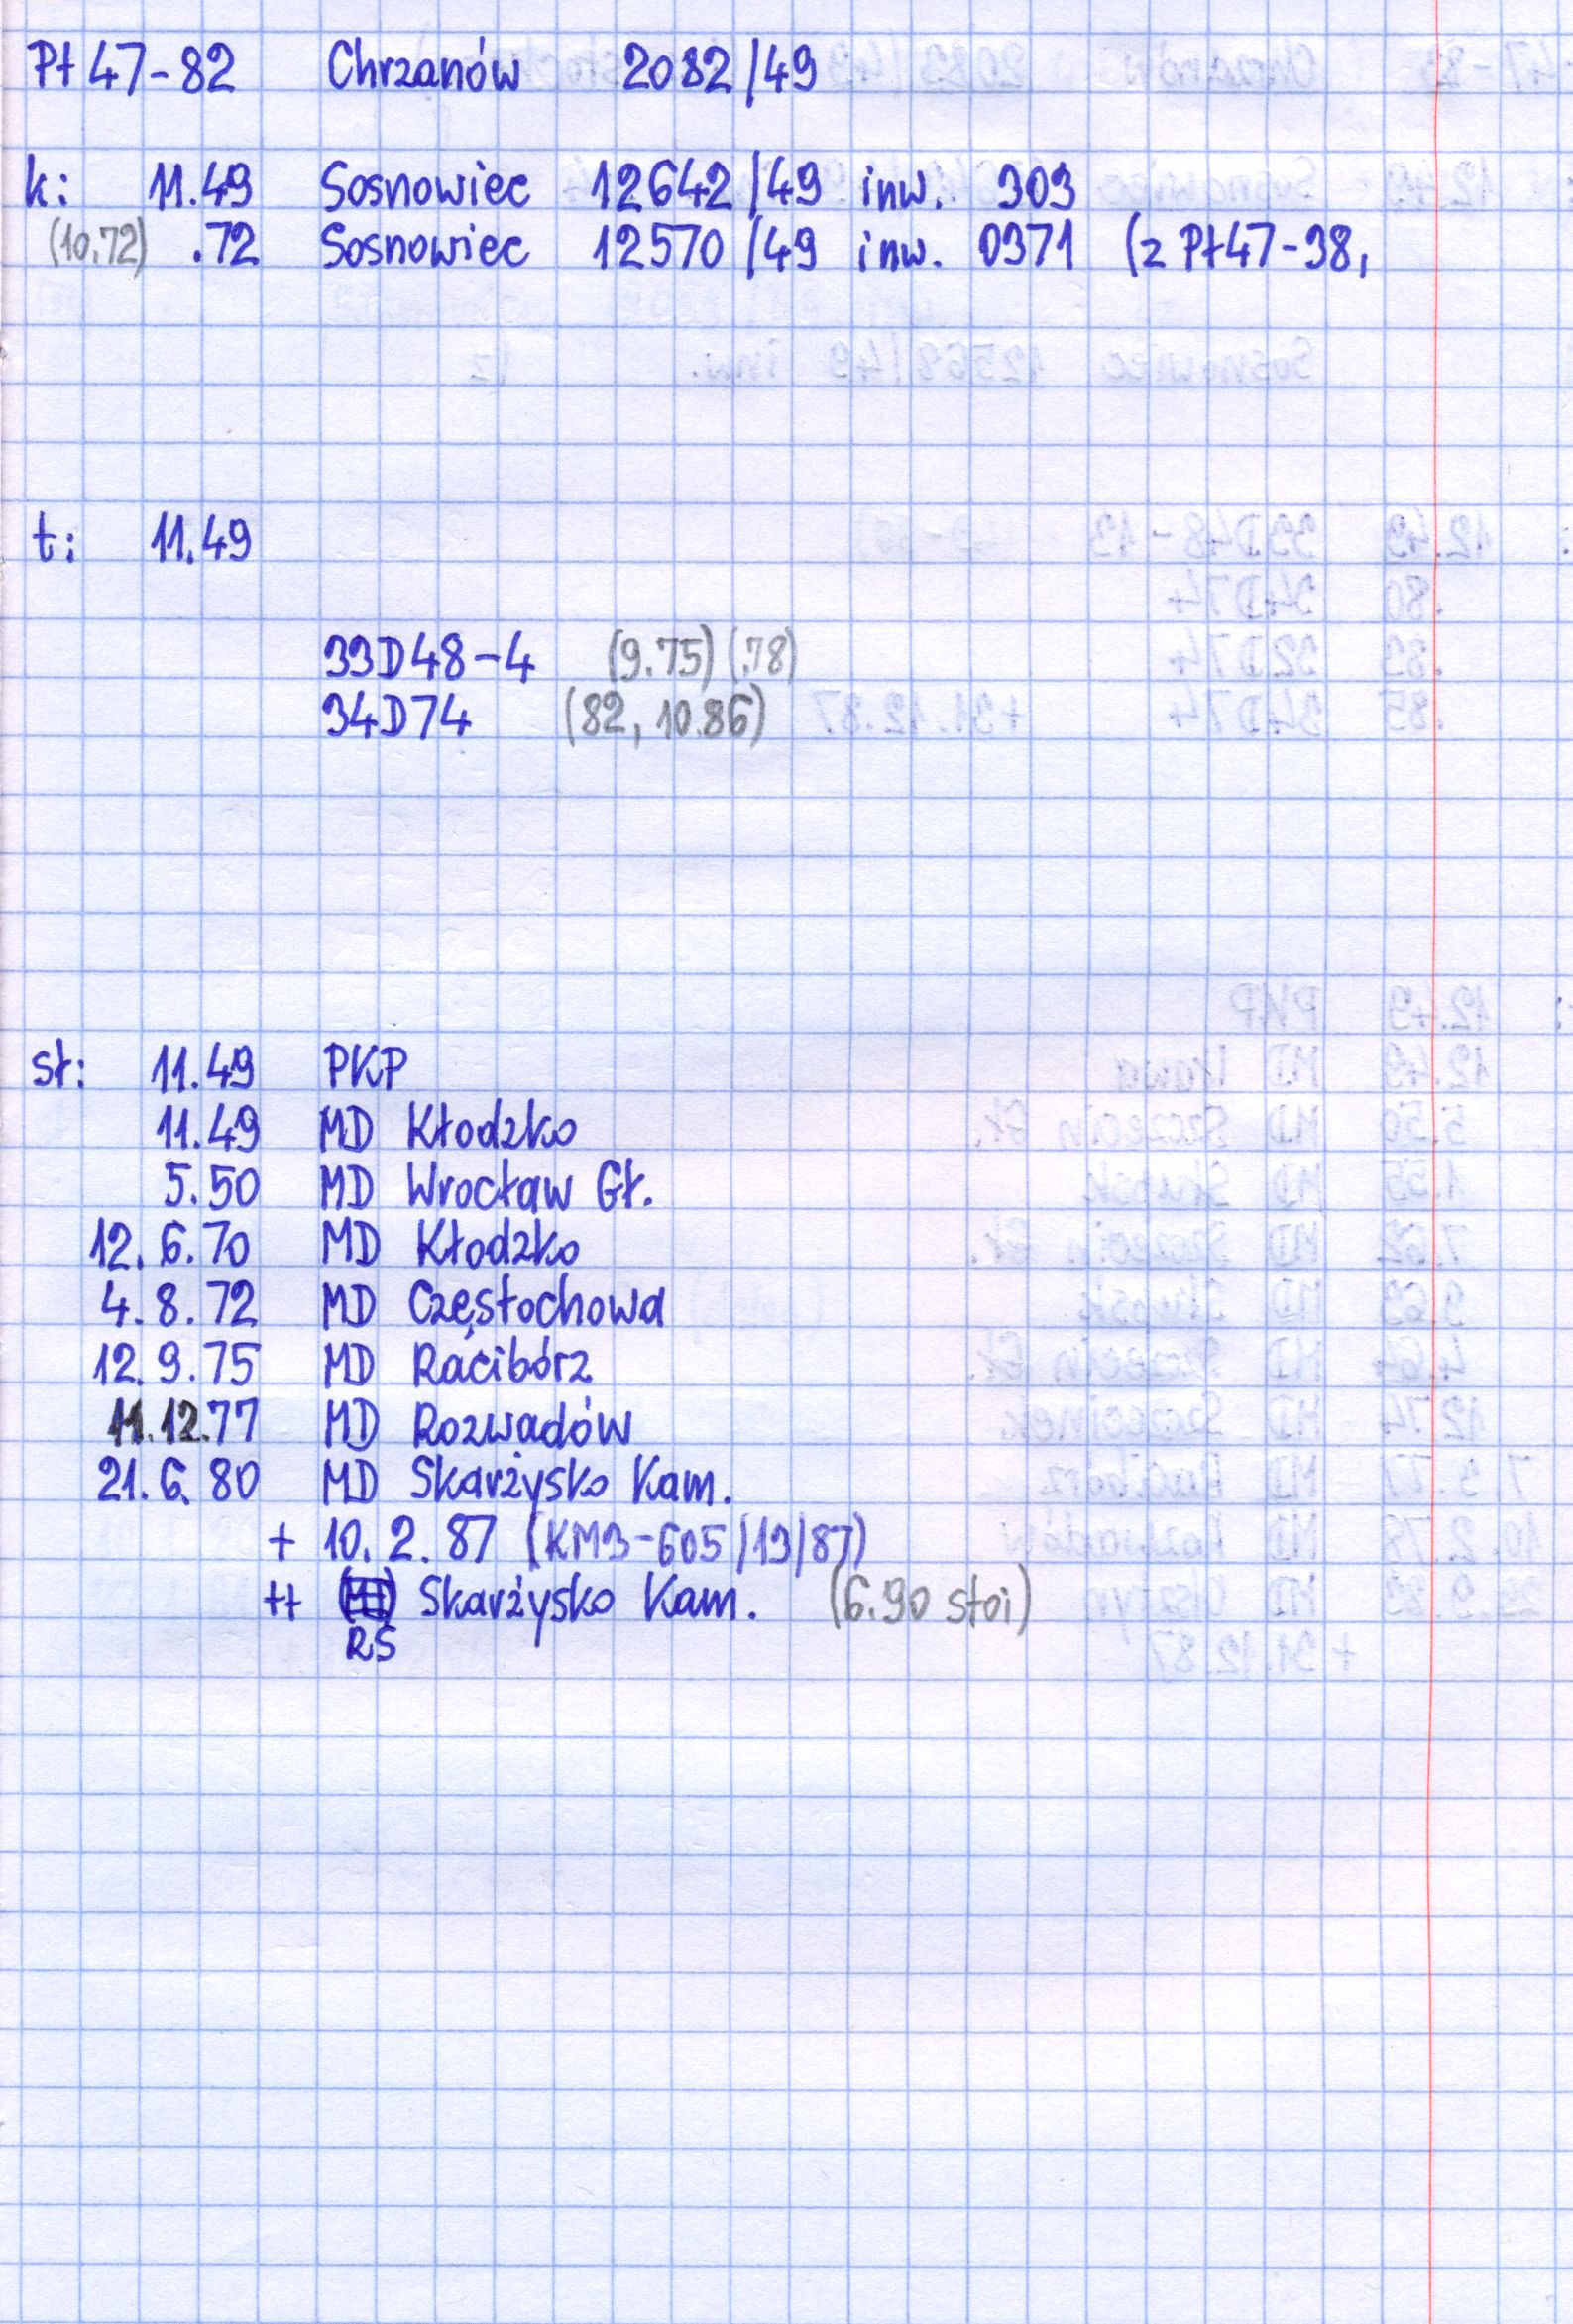 Pt47-82 Chrzanów 2082/49
k: 11.49 Sosnowiec 12642/49 inw. 303
(10.72) .72 Sosnowiec 12570/49 inw. 0371 (z Pt47-38,
t: 11.49
33D48-4 (9.75) (.78)
34D74 (82, 10.86)
sł: 11.49 PKP
11.49 MD Kłodzko
5.50 MD Wrocław Gł.
12.6.70 MD Kłodzko
4.8.72 MD Częstochowa
12.9.75 MD Racibórz
11.12.77 MD Rozwadów
21.6.80 MD Skarżysko Kam.
+ 10.2.87 (KM3-605/13/87)
++ Skarżysko Kam. (6.90 stoi)
RS